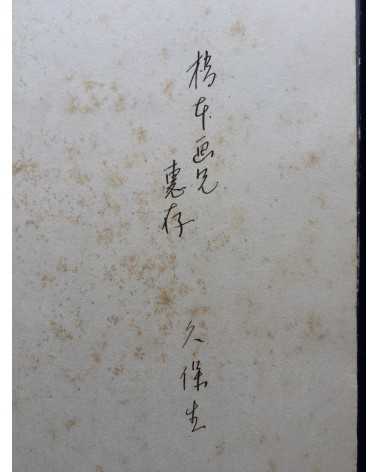 橋本画兄
恵存
久保生